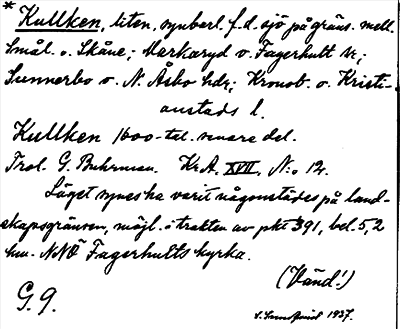 * Kullken, liten, synbarl. f.d. sjö på gräns. mell.
Smål. o. Skåne; Markaryd o. Fagerhult sr;
Sunnerbo o. N. Åsbo hdr; Kronob. o. Kristi-
anstads l.
Kullken 1600-tal. senare del.
Trol. G. Buhrman. Kr.A. XVII, N:o 12.
Läget synes ha varit någonstädes på land-
skapsgränsen, möjl. i trakten av pkt 391, bel. 5,2
km. NNÖ Fagerhults kyrka.
(Vänd!)
G. 9.
1937.